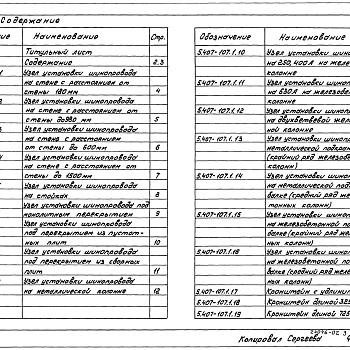 Содержание
ие Наименование Стр.
Титульный лист
Содержание 2.3
Узел установки шинопровода
на стене с расстоянием от
стены 180 мм 4
Узел установки шинопровода
на стене с расстоянием от
стены до 5
Узел установки шинопровода
на стене с расстоянием
от стены до 600 мм 6
Узел установки шинопровода
на стене с расстоянием от
стены до 1500 мм 7
Узел установки шинопровода
на стойках 8
Узел установки шинопровода под
монолитным перекрытием 9
Узел установки шинопровода
под перекрытием из пустот-
ных плит 10
Узел установки шинопровода
под перекрытием из сборных
плит 11
Узел установки шинопровода
на металлической колонне 12
Обозначение Наименование
5.407-107.1.10 Узел установки шиноп
на 250, 400 А на желе
колонне
5.407-107.1.11 Узел установки шиноп
на 630 А на железобе
колонне
5.407-107.1.12 Узел установки шиноп
на двухветвевой желе
ной колонне
5.407-107.1.13 Узел установки шиноп
металлической подкра
(крайний ряд железобе
колонн)
5.407-107.1.14 Узел установки шиноп
на металлической под
балке (средний ряд же
тонных колонн)
5.407-107.1.15 Узел установки шиноп
на железобетонной по
балке (крайний ряд же
колонн)
5.407-107.1.16 Узел установки шиноп
на железобетонной по
балке (средний ряд же
колонн)
5.407-107.1.17 Кронштейн с удлини
5.407-107.1.18 Кронштейн длиной 325
5.407-107.1.19 Кронштейн длиной 725
Копировал Сергеева